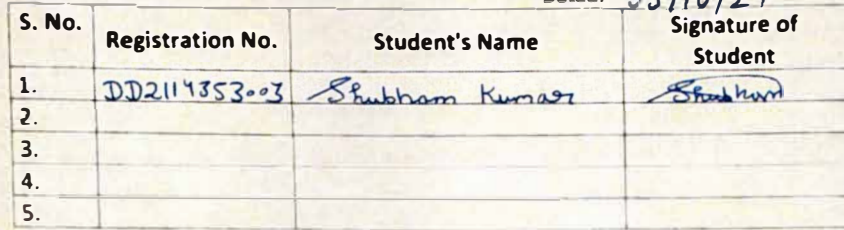 S. No. Registration No. Student's Name Signature of Student
1. DD2114353003 Shubham Kumar Shubham
2.
3.
4.
5.